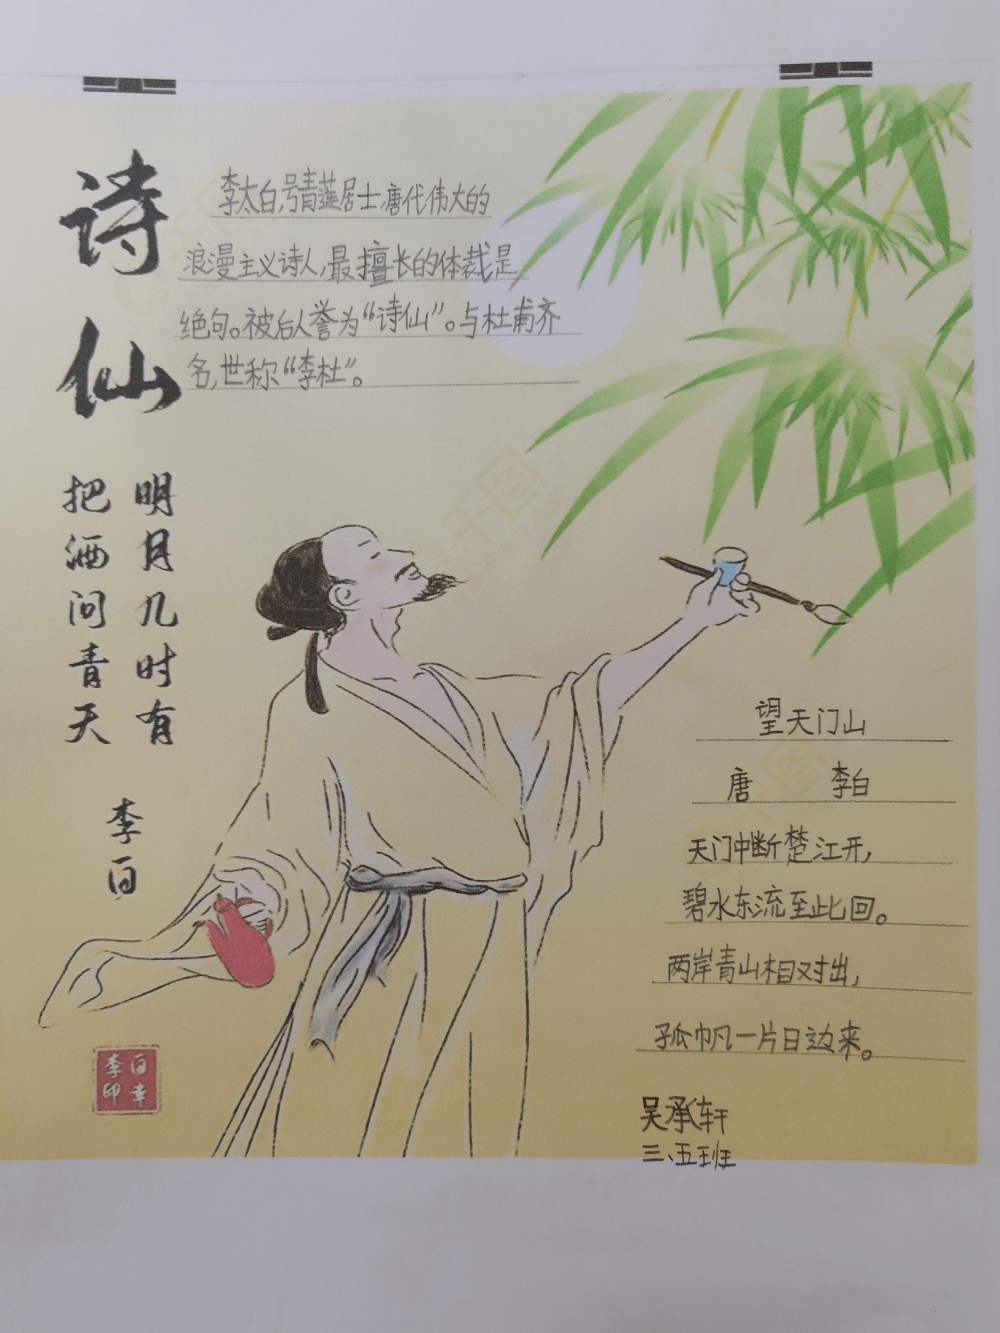 诗仙
李太白,号青莲居士,唐代伟大的
浪漫主义诗人,最擅长的体裁是
绝句。被后人誉为“诗仙”。与杜甫齐
名,世称“李杜”。
明月几时有
把酒问青天
李白
望天门山
唐 李白
天门中断楚江开,
碧水东流至此回。
两岸青山相对出,
孤帆一片日边来。
吴承轩
三、五班
千图